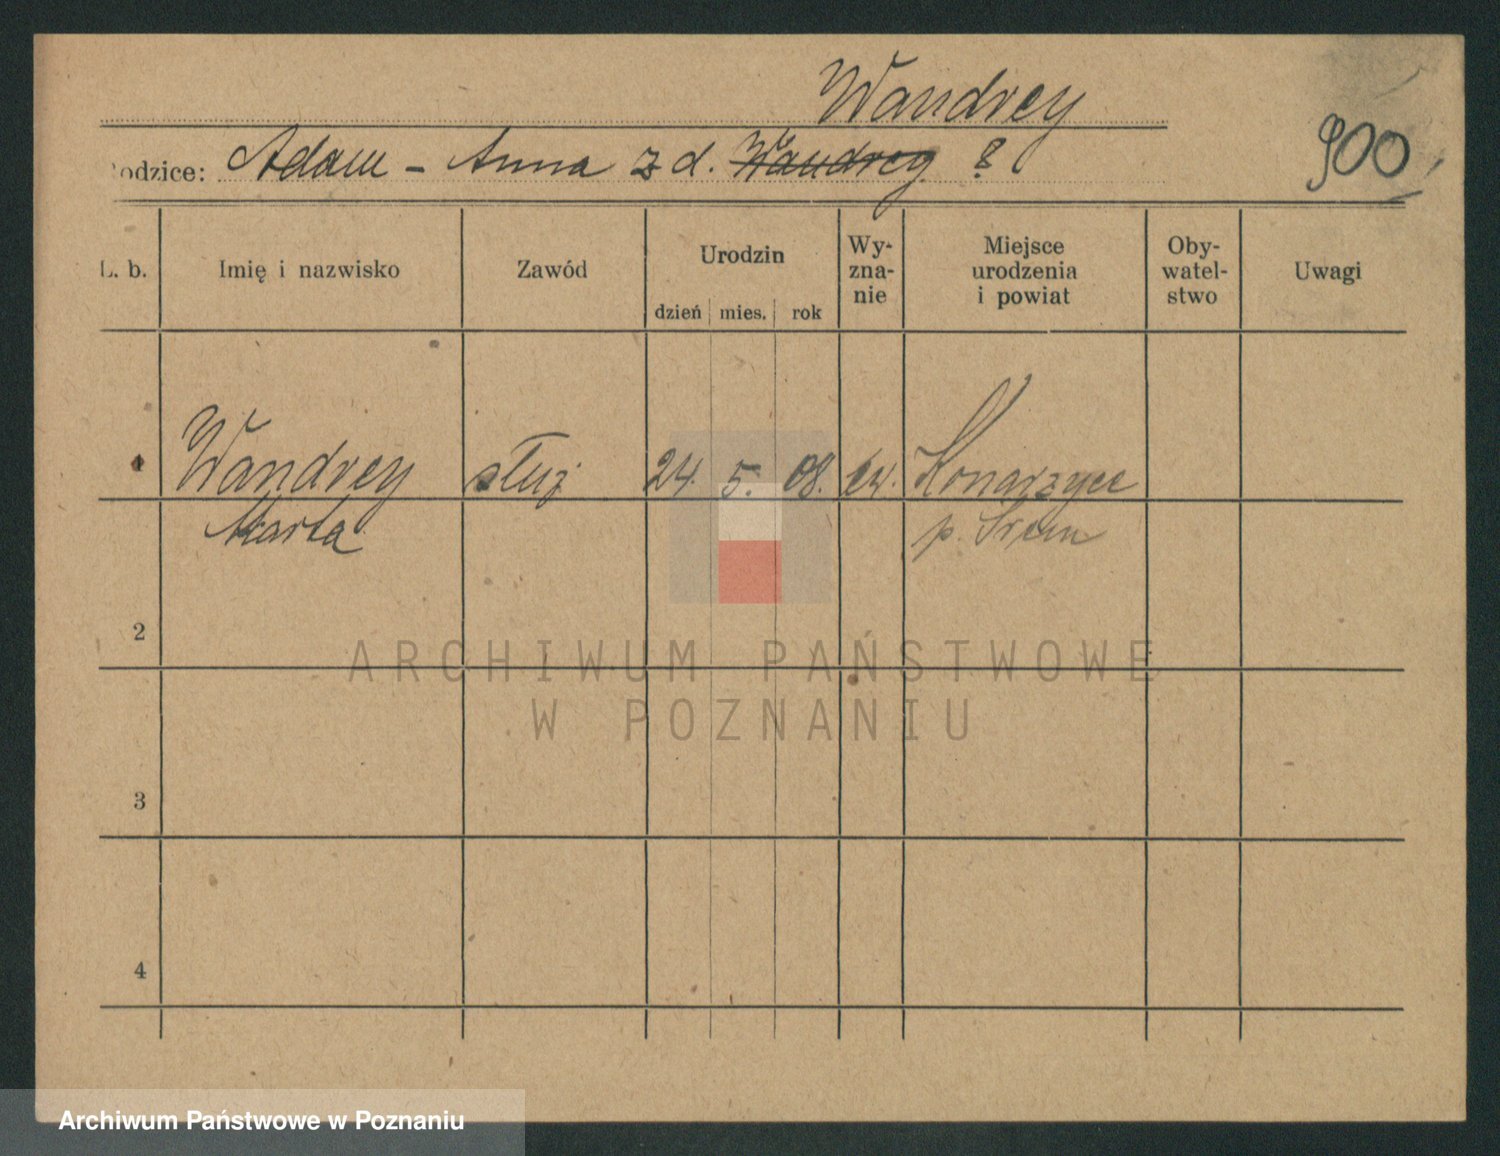 Wandrey
900
Rodzice: Adam - Anna z d. Wandrey ?
L. b.
Imię i nazwisko
Zawód
Urodzin
dzień mies. rok
Wy-
zna-
nie
Miejsce
urodzenia
i powiat
Oby-
watel-
stwo
Uwagi
1 Wandrey służ 24. 5. 08. Konarzyce
Marta p. Śrem
2
ARCHIWUM PAŃSTWOWE
W POZNANIU
3
4
Archiwum Państwowe w Poznaniu